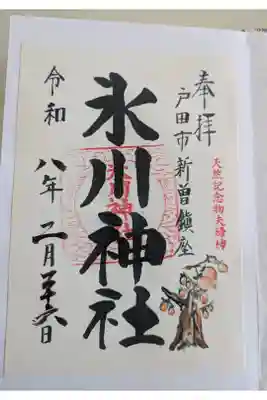 奉拝
戸田市新曽鎮座
天然記念物夫婦柿
氷川神社
氷川神社
令和八年二月廿六日